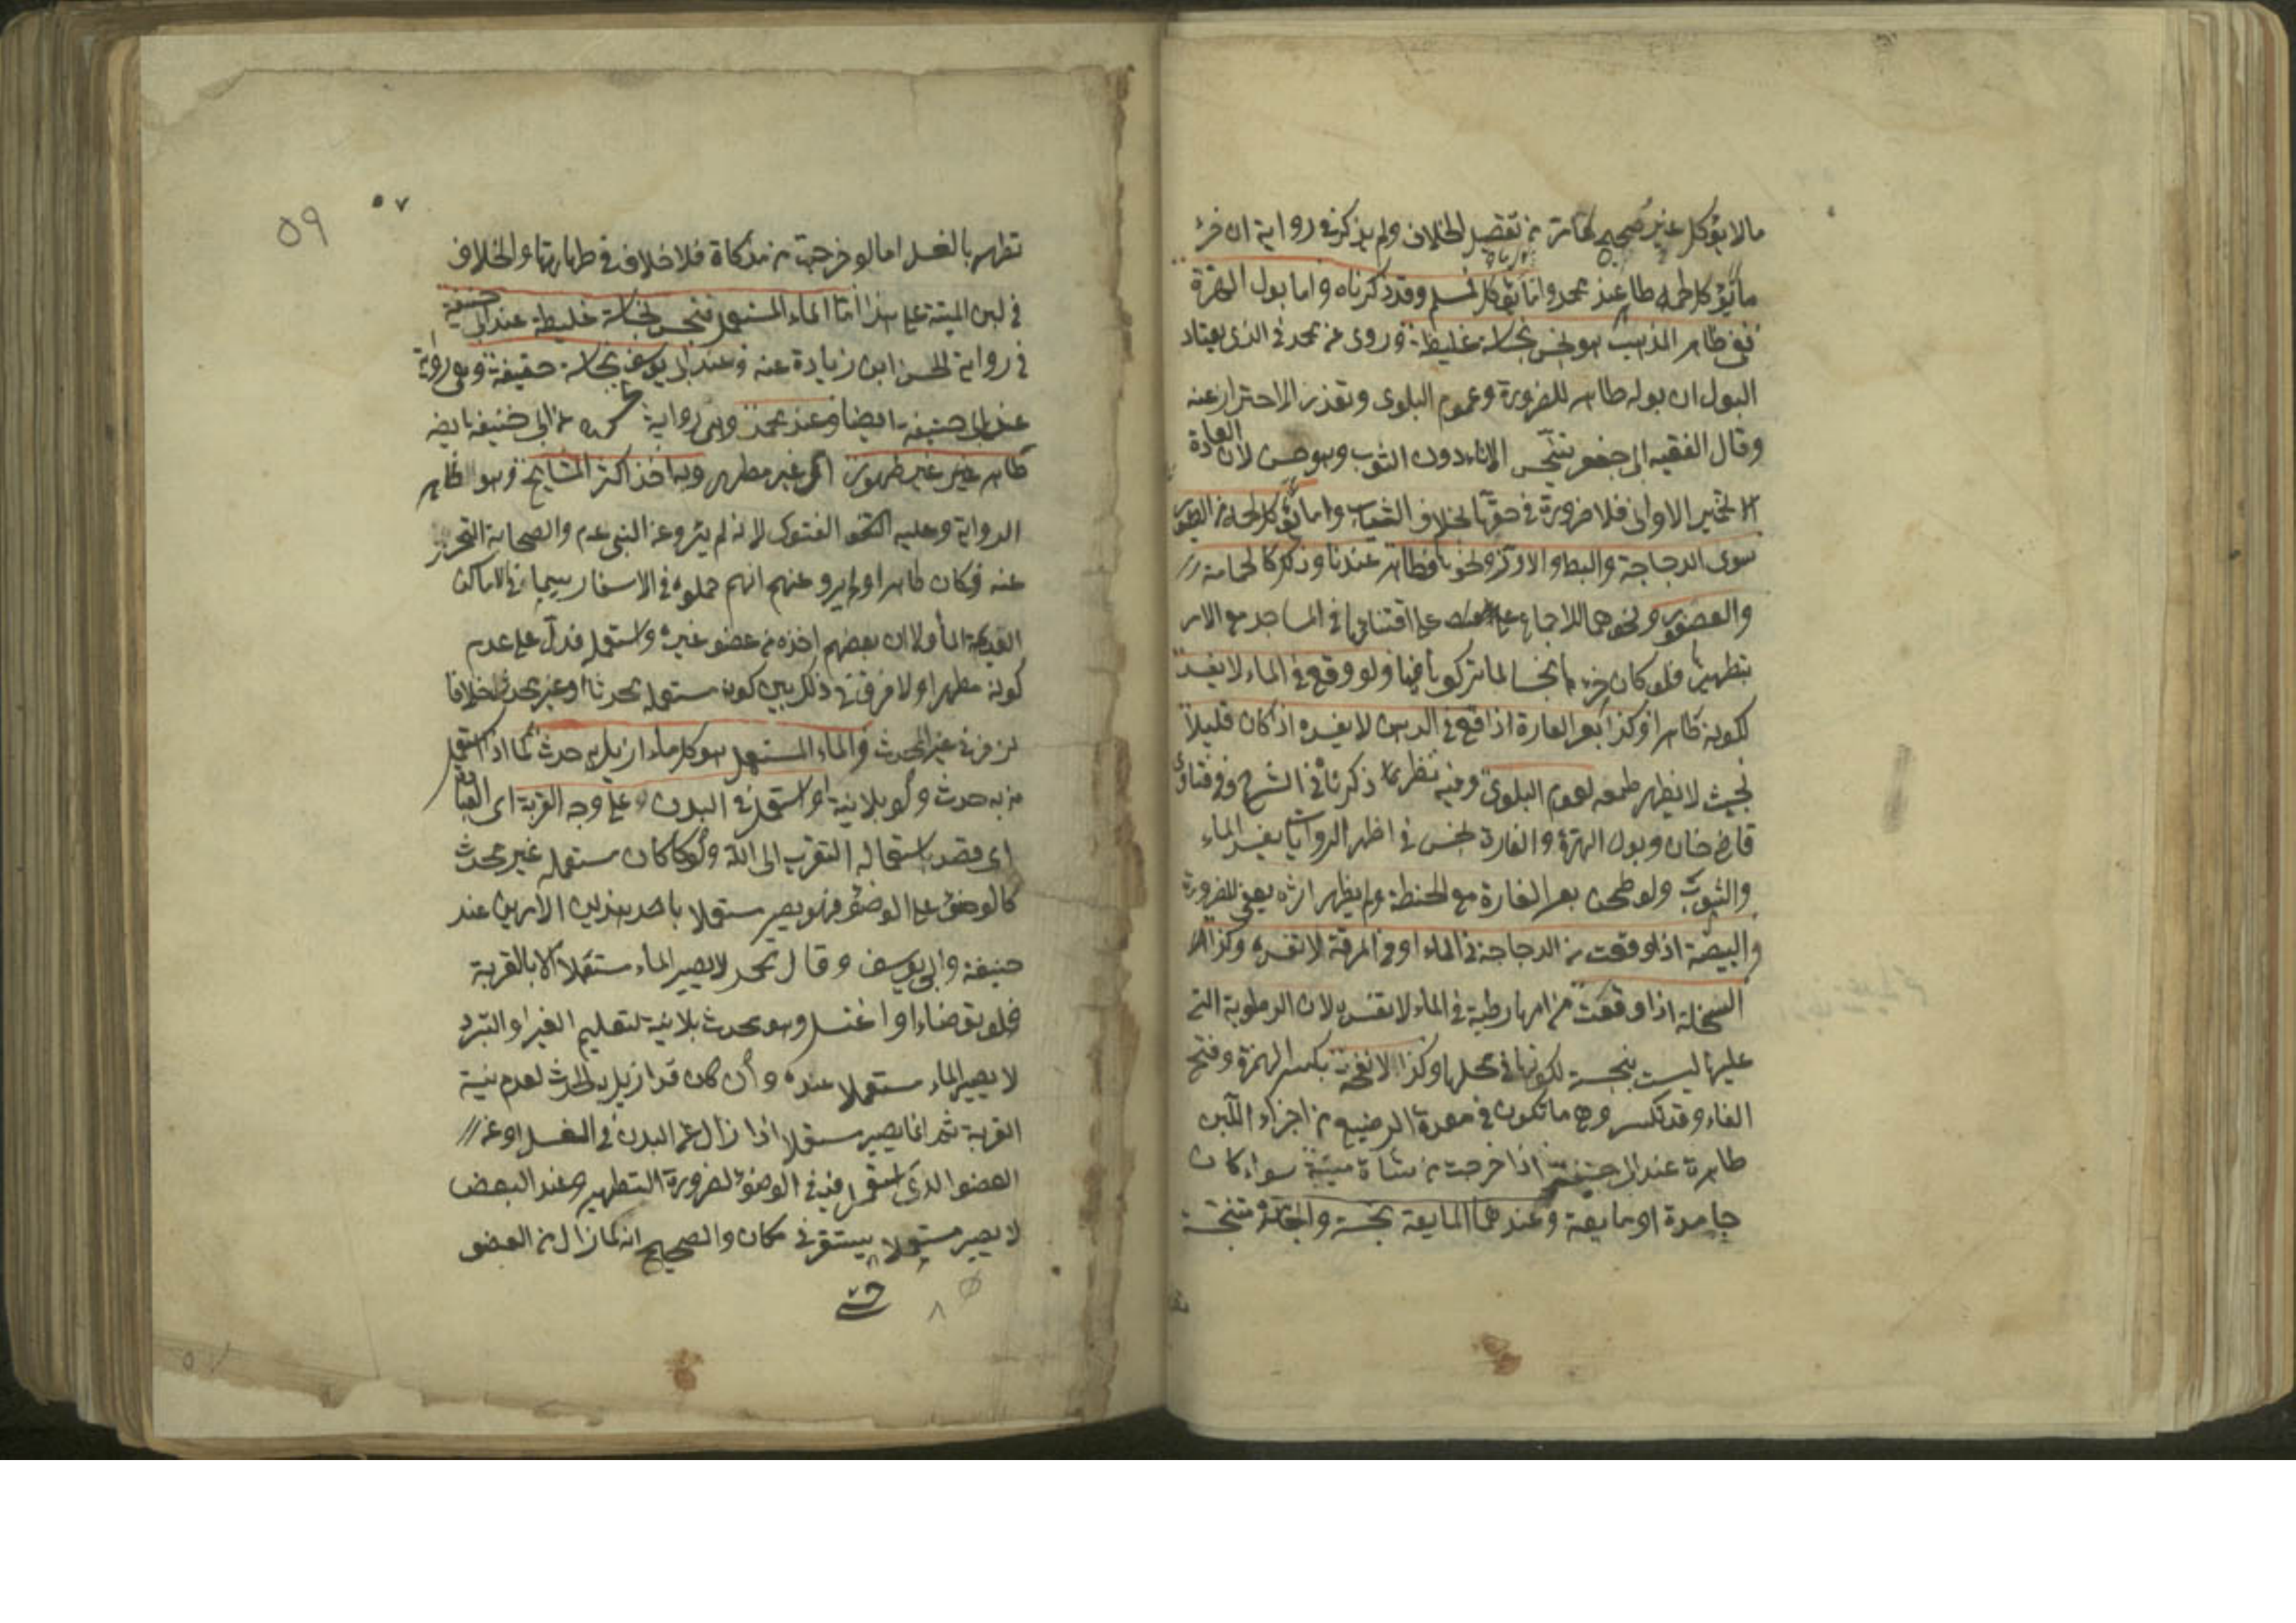 مالا يؤكل غير صحيح لما مر من تفصيل الخلاف ولم يذكر في رواية ان خرء
ما يؤكل لحمه طاهر عند محمد وانما يؤكل وقد ذكرناه واما بول الهرة
ففي ظاهر المذهب هو نجس نجاسة غليظة وروى عن محمد في الذى يعتاد
البول ان بوله طاهر للضرورة وعموم البلوى وتعذر الاحتراز عنه
وقال الفقيه ابى جعفر ينجس الاناء دون الثوب وهو حسن لان العادة
تخمير الاوانى فلا ضرورة في حقها بخلاف الثياب واما يؤكل لحمه من الطيور
سوى الدجاجة والبط والاوز ونحوها فطاهر عندنا وذلك كالحمامة
والعصفور ونحوهما للاجماع على اقتنائها في المساجد مع الامر
بتطهيرها فلو كان خرءها نجسا لما تركوها فيها ولو وقع في الماء لا يفسد
لكونه طاهرا وكذا بعر الفارة اذا وقع في الدهن لا يفسده اذا كان قليلا
بحيث لا يظهر طعمه لعموم البلوى وفيه نظر كما ذكرنا في الشرح وفي فتاوى
قاضى خان وبول الهرة والفارة نجس في اظهر الروايات يفسد الماء
والثوب ولو طحن بعر الفارة مع الحنطة ولم يظهر اثره يعفى للضرورة
والبيضة اذا وقعت من الدجاجة في الماء او في المرقة لا تفسده وكذا
السخلة اذا وقعت من امها رطبة في الماء لا تفسده لان الرطوبة التى
عليها ليست بنجسة لكونها في محلها وكذا الانفحة بكسر الهمزة وفتح
الفاء وقد تكسر وهى ما تكون في معدة الرضيع من اجزاء اللبن
طاهرة عند ابى حنيفة اذا خرجت من شاة ميتة سواء كانت
جامدة او مايعة وعندهما المايعة نجسة والجامدة متنجسة
٥٧
٥٩
تطهر بالغسل اما لو خرجت من مذكاة فلا خلاف في طهارتها والخلاف
في لبن الميتة على هذا اما الماء المستعمل فنجس نجاسة غليظة عند ابى حنيفة
في رواية الحسن ابن زياد عنه وعند ابى يوسف نجاسة خفيفة وهى رواية
عن ابى حنيفة ايضا وعند محمد وهى رواية عن ابى حنيفة ايضا
طاهر غير طهور اى غير مطهر وبه اخذ اكثر المشايخ وهو ظاهر
الرواية وعليه الفتوى لانه لم يرو عن النبى عم والصحابة التحرز
عنه فكان طاهرا ولم يرو عنهم انهم حملوه في الاسفار سيما في الاماكن
القليلة الماء ولا ان بعضهم اخذه من عضو غيره واستعمله فدل على عدم
كونه مطهرا ولا فرق في ذلك بين كون مستعمله محدثا او غير محدث خلافا
لزفر في غير المحدث والماء المستعمل هو كل ماء ازيل به حدث كما اذا استعمل
من به حدث ولو بلا نية او استعمل في البدن على وجه القربة اى
اى قصد باستعماله التقرب الى الله ولو كان مستعمله غير محدث
كالوضوء على الوضوء فهو يصير مستعملا باحد هذين الامرين عند
حنيفة وابى يوسف وقال محمد لا يصير الماء مستعملا الا بالقربة
فلو توضاء او اغتسل وهو محدث بلا نية لتعليم الغير او التبرد
لا يصير الماء مستعملا عنده وان كان قد ازيل به الحدث لعدم نية
القربة ثم انما يصير مستعملا اذا زال عن البدن في الغسل او عن
العضو الذى استعمل فيه في الوضوء لضرورة التطهير وعند البعض
لا يصير مستعملا يستقر في مكان والصحيح انه كما زال من العضو
حتى